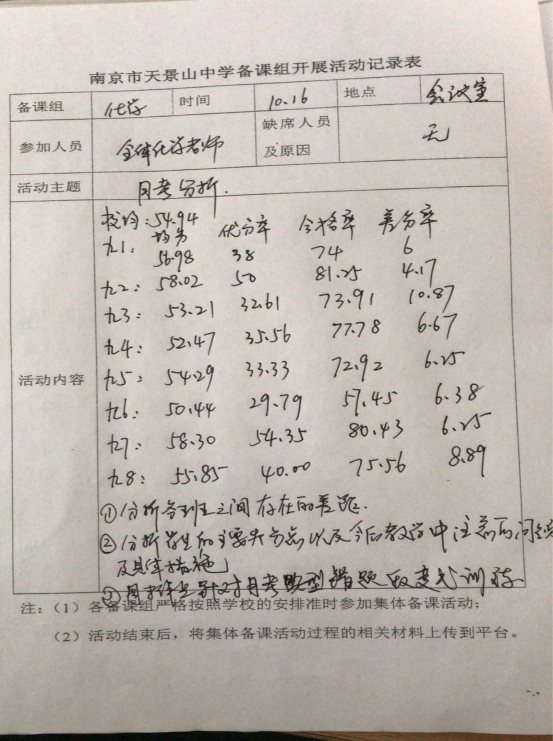 南京市天景山中学备课组开展活动记录表
备课组 化学 时间 10.16 地点 会议室
参加人员 全体化学老师 缺席人员及原因 无
活动主题 月考分析.
活动内容
校均:54.94
均分 优分率 合格率 差分率
九1: 56.98 38 74 6
九2: 58.02 50 81.25 4.17
九3: 53.21 32.61 73.91 10.87
九4: 52.47 35.56 77.78 6.67
九5: 54.29 33.33 72.92 6.25
九6: 50.44 29.79 57.45 6.38
九7: 58.30 54.35 80.43 6.25
九8: 55.85 40.00 75.56 8.89
①分析各班之间存在的差距.
②分析学生的主要失分点以及今后教学中注意的问题
及具体措施
③ 针对月考典型错题的变式训练
注:(1)各备课组严格按照学校的安排准时参加集体备课活动;
(2)活动结束后,将集体备课活动过程的相关材料上传到平台。